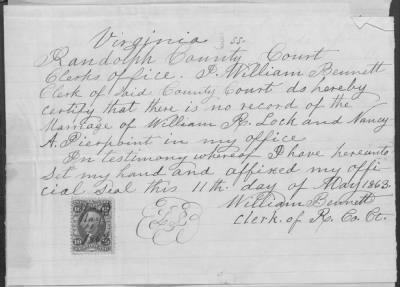 Virginia ss-
Randolph County Court
Clerks office. I, William Bennett
Clerk of Said County Court do hereby
certify that there is no record of the
Marriage of William R. Loch and Nancy
A. Pierpoint in my office
In testimony whereof I have hereunto
set my hand and affixed my offi-
cial seal this 11th. day of May 1863.
William Bennett
Clerk. of R. Co. Ct.